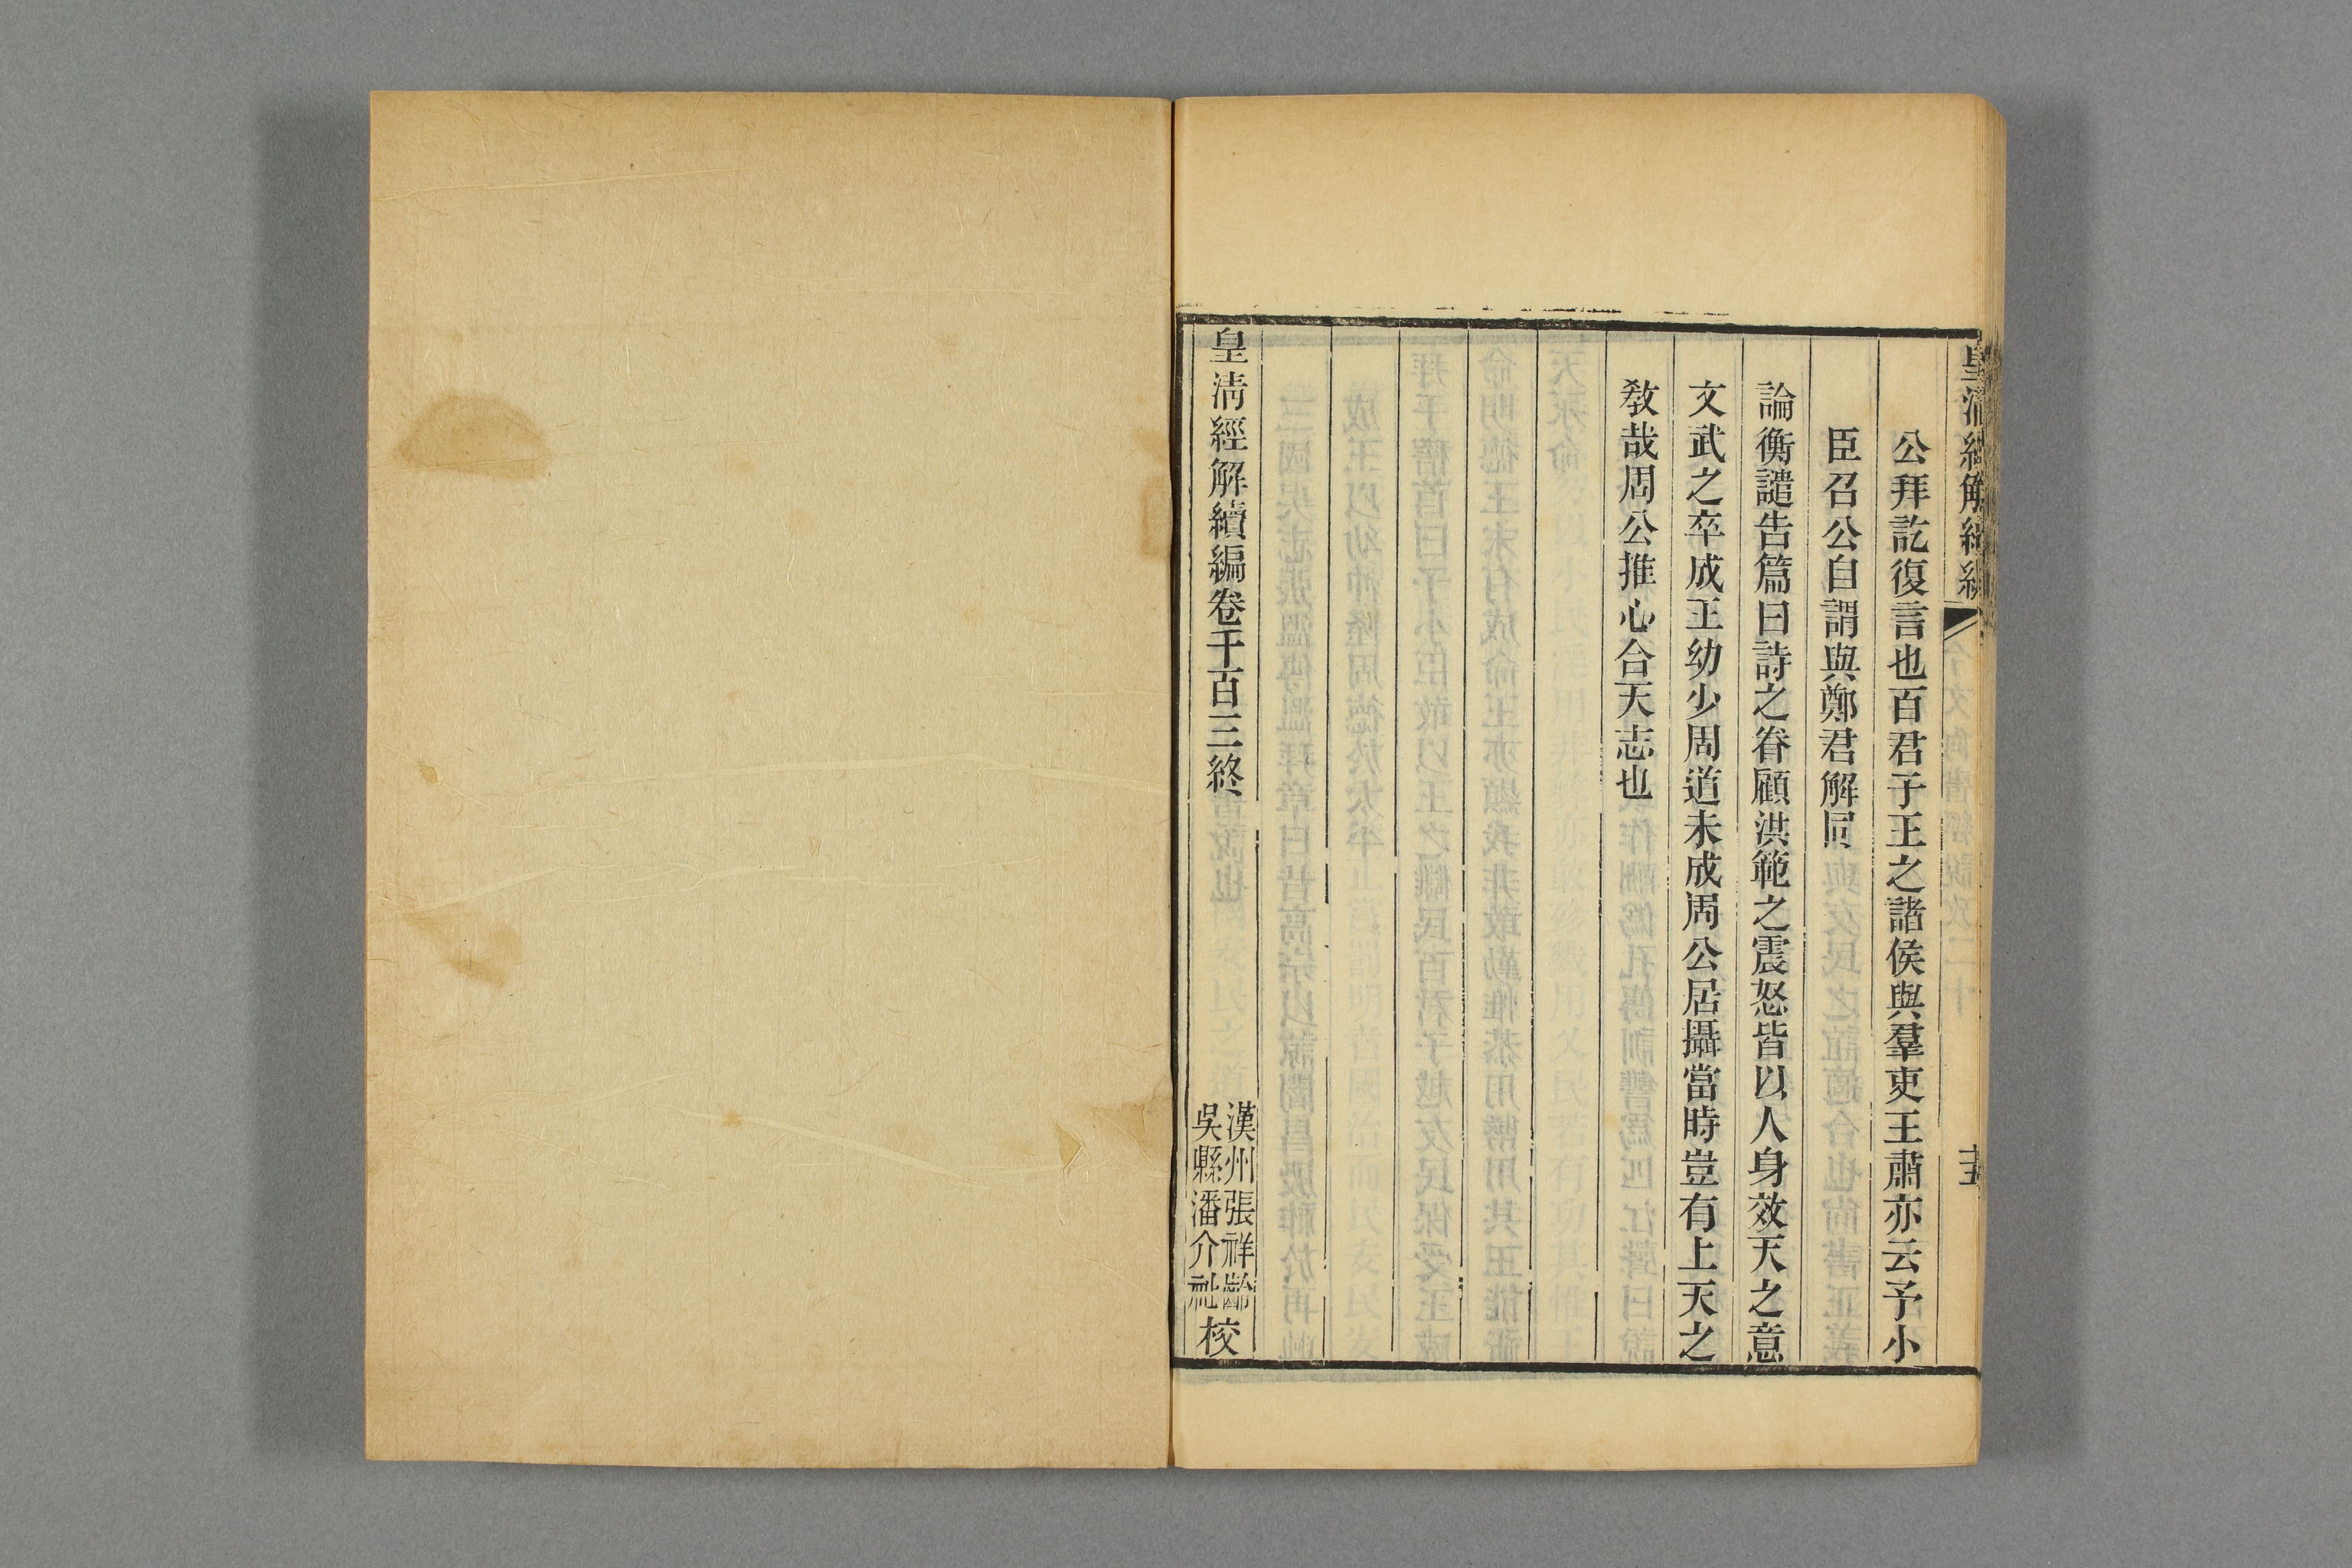 皇清經解續編
十五
公拜訖復言也百君子王之諸侯與羣吏王肅亦云予小
臣召公自謂與鄭君解同
論衡譴告篇曰詩之眷顧洪範之震怒皆以人身效天之意
文武之卒成王幼少周道未成周公居攝當時豈有上天之
敎哉周公推心合天志也
皇淸經解續編卷千百三終
漢州張祥齡
吳縣潘介祉
校